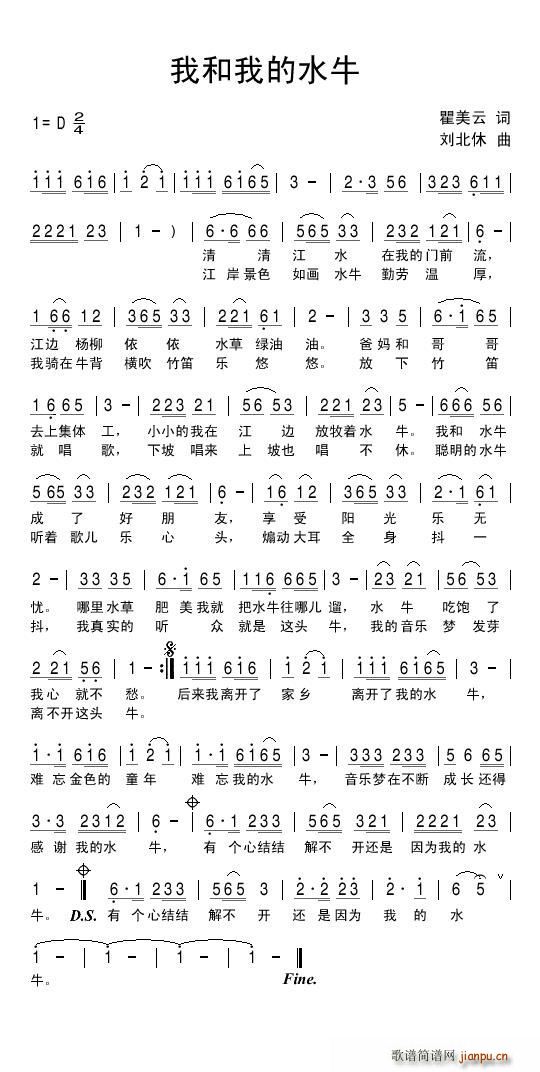 我和我的水牛
1= D 2/4
瞿美云 词
刘北休 曲
111 616 | 1 2 1 | 111 6165 | 3 - | 2·3 56 | 323 611 |
2221 23 | 1 - ) | 6·6 66 | 565 33 | 232 121 | 6 - |
清 清 江 水 在我的门前 流，
江 岸景色 如画 水牛 勤劳 温 厚，
1 66 12 | 365 33 | 221 61 | 2 - | 3 3 5 | 6·1 65 |
江边 杨柳 依 依 水草 绿油 油。 爸妈和 哥 哥
我骑在牛背 横吹 竹笛 乐 悠 悠。 放 下 竹 笛
1 6 65 | 3 - | 223 21 | 56 53 | 221 23 | 5 - | 666 56 |
去上集体 工， 小小的我在 江 边 放牧着 水 牛。 我和 水牛
就 唱 歌， 下坡 唱来 上 坡也 唱 不 休。 聪明的水牛
565 33 | 232 121 | 6 - | 16 12 | 365 33 | 2·1 61 |
成 了 好 朋 友， 享 受 阳 光 乐 无
听着 歌儿 乐 心 头， 煽动 大耳 全 身 抖 一
2 - | 33 35 | 6·1 65 | 116 61 | 3 - | 23 21 | 56 53 |
忧。 哪里水草 肥 美我就 把水牛往哪儿 遛， 水 牛 吃饱 了
抖， 我真实的 听 众 就是 这头 牛， 我的音乐 梦 发芽
2 21 55 | 1 - :‖ 111 616 | 1 2 1 | 111 6165 | 3 - |
我心 就不 愁。 后来我离开了 家乡 离开了我的水 牛，
离不开这头 牛。
111 616 | 1 2 1 | 1·1 6165 | 3 - | 333 233 | 5 6 65 |
难 忘金色的 童年 难 忘我的水 牛， 音乐梦在不断 成长还得
3·3 2312 | 6 - | 6·1 233 | 565 333 | 2221 23 |
感 谢 我的水 牛， 有 个心结结 解不 开还是 因为我的 水
1 - ‖ 6·1 233 | 565 3 | 2·2 23 | 2· 1 | 6 5 |
牛。 D.S. 有 个心结结 解不 开 还 是因为 我 的 水
1 - | 1 - | 1 - | 1 - ‖
牛。 Fine.
歌谱简谱网 jianpu.cn